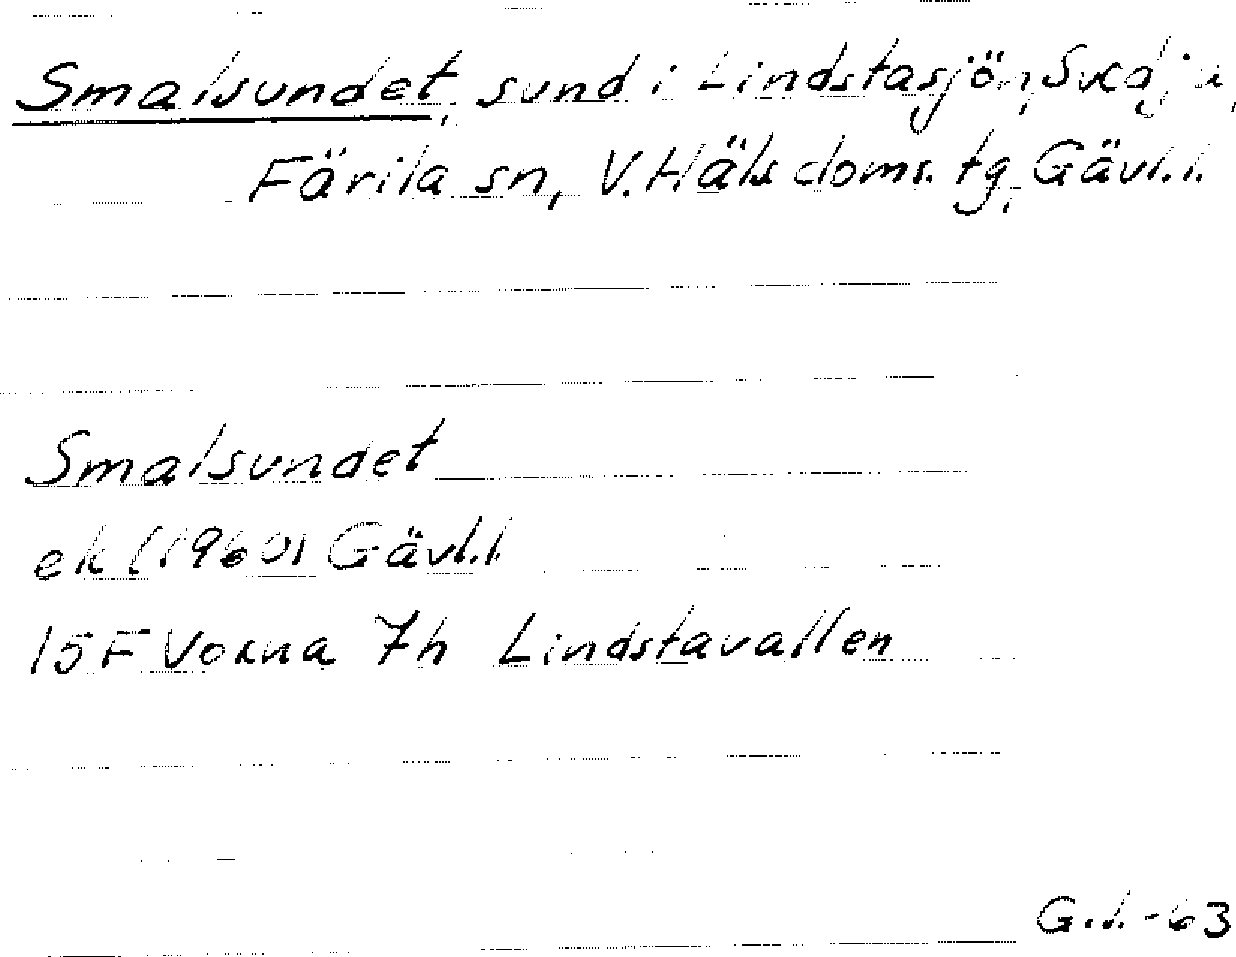 Smalsundet, sund i Lindstasjön,
Färila sn, V. Häls doms. tg, Gävl.l.
Smalsundet
ek (1960) Gävl.l.
15F Voxna 7h Lindstavallen
G.L.-63